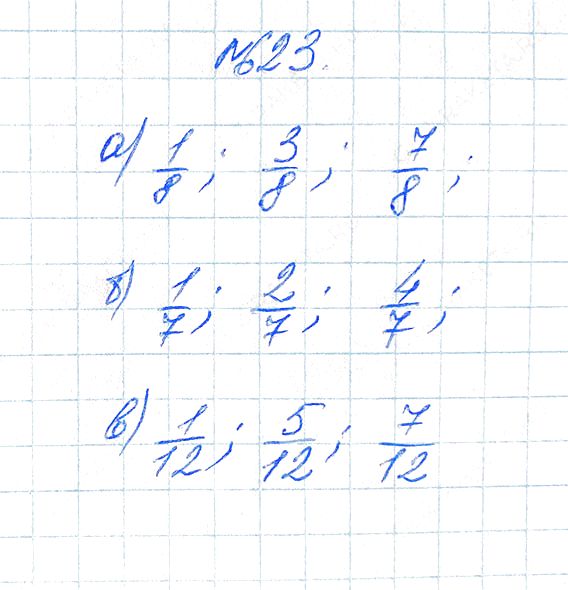 №23.
а) 1/8; 3/8; 7/8;
б) 1/7; 2/7; 4/7;
в) 1/12; 5/12; 7/12